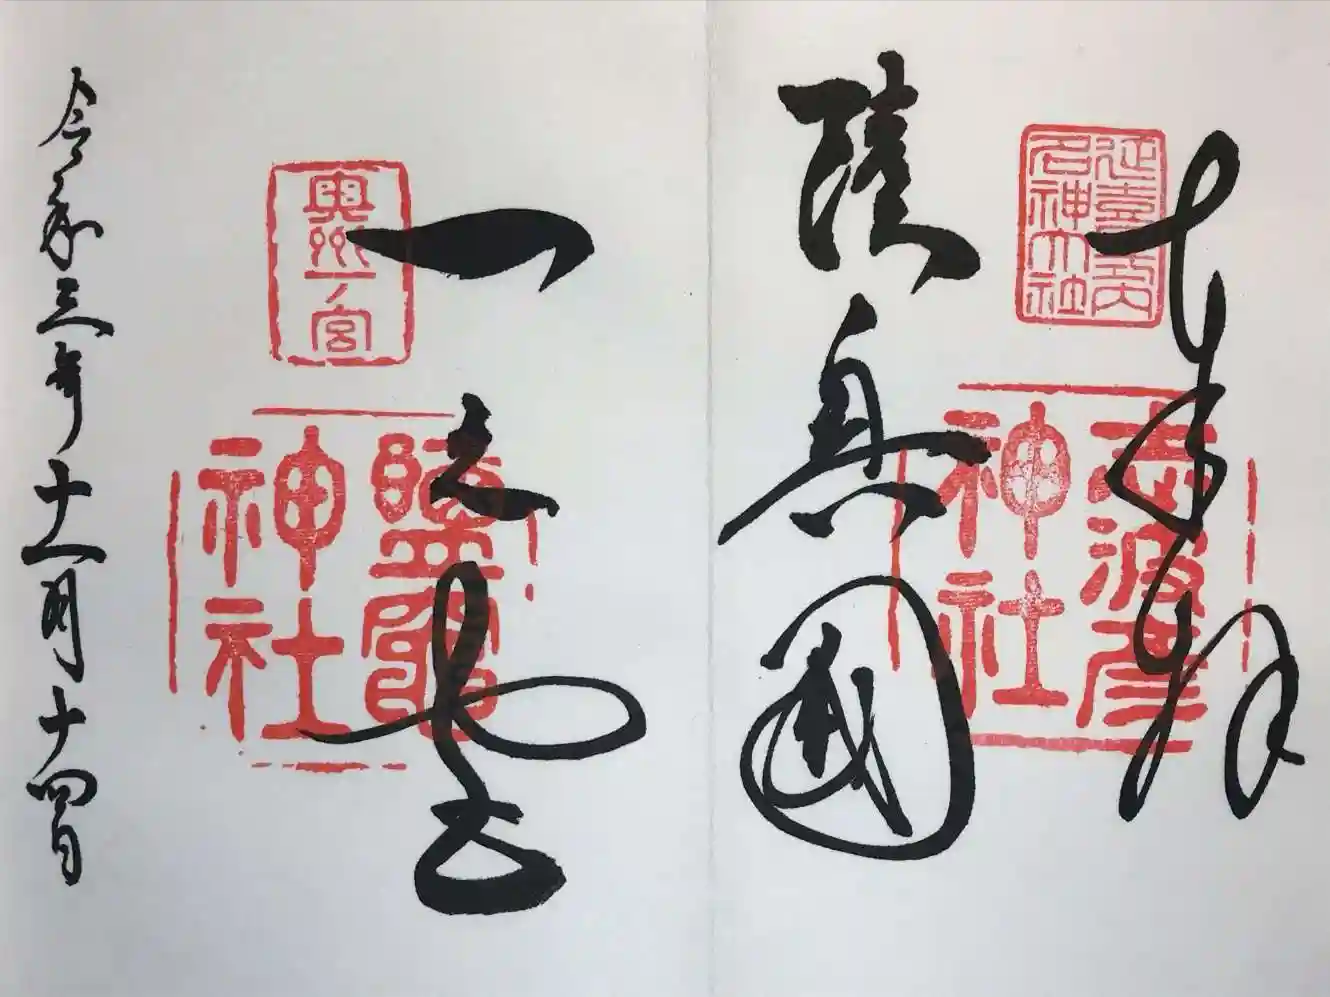 奉拝
延喜式内
名神大社
志波彦
神社
陸奥國
一之宮
奥州一ノ宮
鹽竈
神社
令和三年十一月十四日